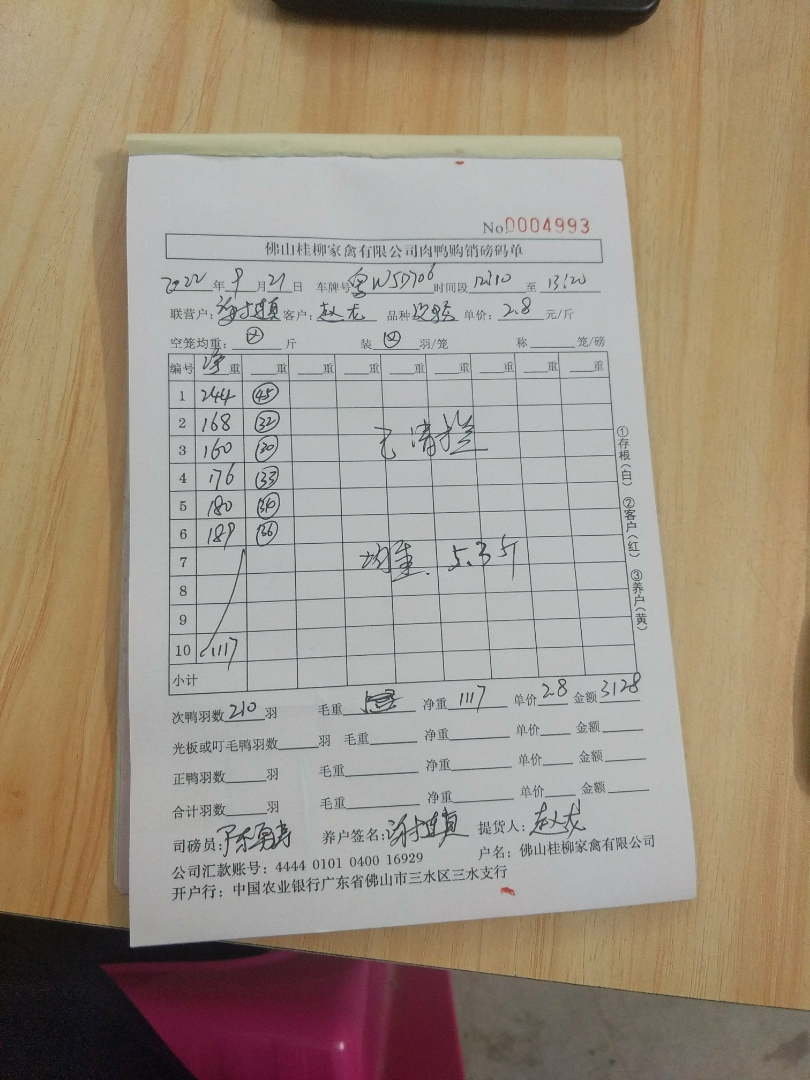 No 0004993
佛山桂柳家禽有限公司肉鸭购销磅码单
2022年9月21日 车牌号粤W5D706时间段12:10至13:20
联营户: 客户:赵龙 品种次鸭 单价:2.8元/斤
空笼均重: 斤 装 羽/笼 称 笼/磅
编号 净重 重 重 重 重 重 重 重 重
1 244 45
2 168 32
3 160 30
4 176 33
5 180 34
6 189 36
7
8
9
10 1117
小计
已清拦
均重 5.3斤
①存根(白) ②客户(红) ③养户(黄)
次鸭羽数210羽 毛重 净重1117 单价2.8 金额3128
光板或叮毛鸭羽数 羽 毛重 净重 单价 金额
正鸭羽数 羽 毛重 净重 单价 金额
合计羽数 羽 毛重 净重 单价 金额
司磅员: 养户签名: 提货人:赵龙
公司汇款账号:4444 0101 0400 16929 户名:佛山桂柳家禽有限公司
开户行:中国农业银行广东省佛山市三水区三水支行